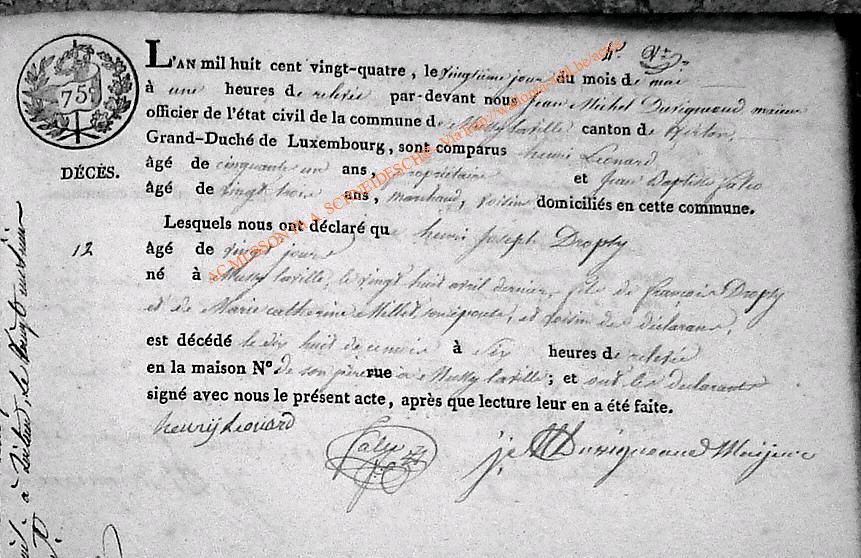 75 c
L'AN mil huit cent vingt-quatre, le vingtième jour du mois de mai
à une heures de relevée par-devant nous Jean Michel Duvigneaud, maieur
officier de l'état civil de la commune de Mussy laville canton de Virton,
Grand-Duché de Luxembourg, sont comparus henri Leonard,
âgé de cinquante un ans, propriétaire et Jean Baptiste
âgé de vingt trois ans, marchand, voisin domiciliés en cette commune.
DÉCÈS.
12
Lesquels nous ont déclaré que henri Joseph Dropsy
âgé de vingt jours
né à Mussy laville, le vingt huit avril dernier, fils de françois Dropsy
et de Marie catherine Millet, son épouse, et voisin des déclarans,
est décédé le dix huit de ce mois à six heures de relevée
en la maison N° de son père rue à Mussy laville; et ont les déclarants
signé avec nous le présent acte, après que lecture leur en a été faite.
henrij Leonard
j. M Duvigneaud Maijeur